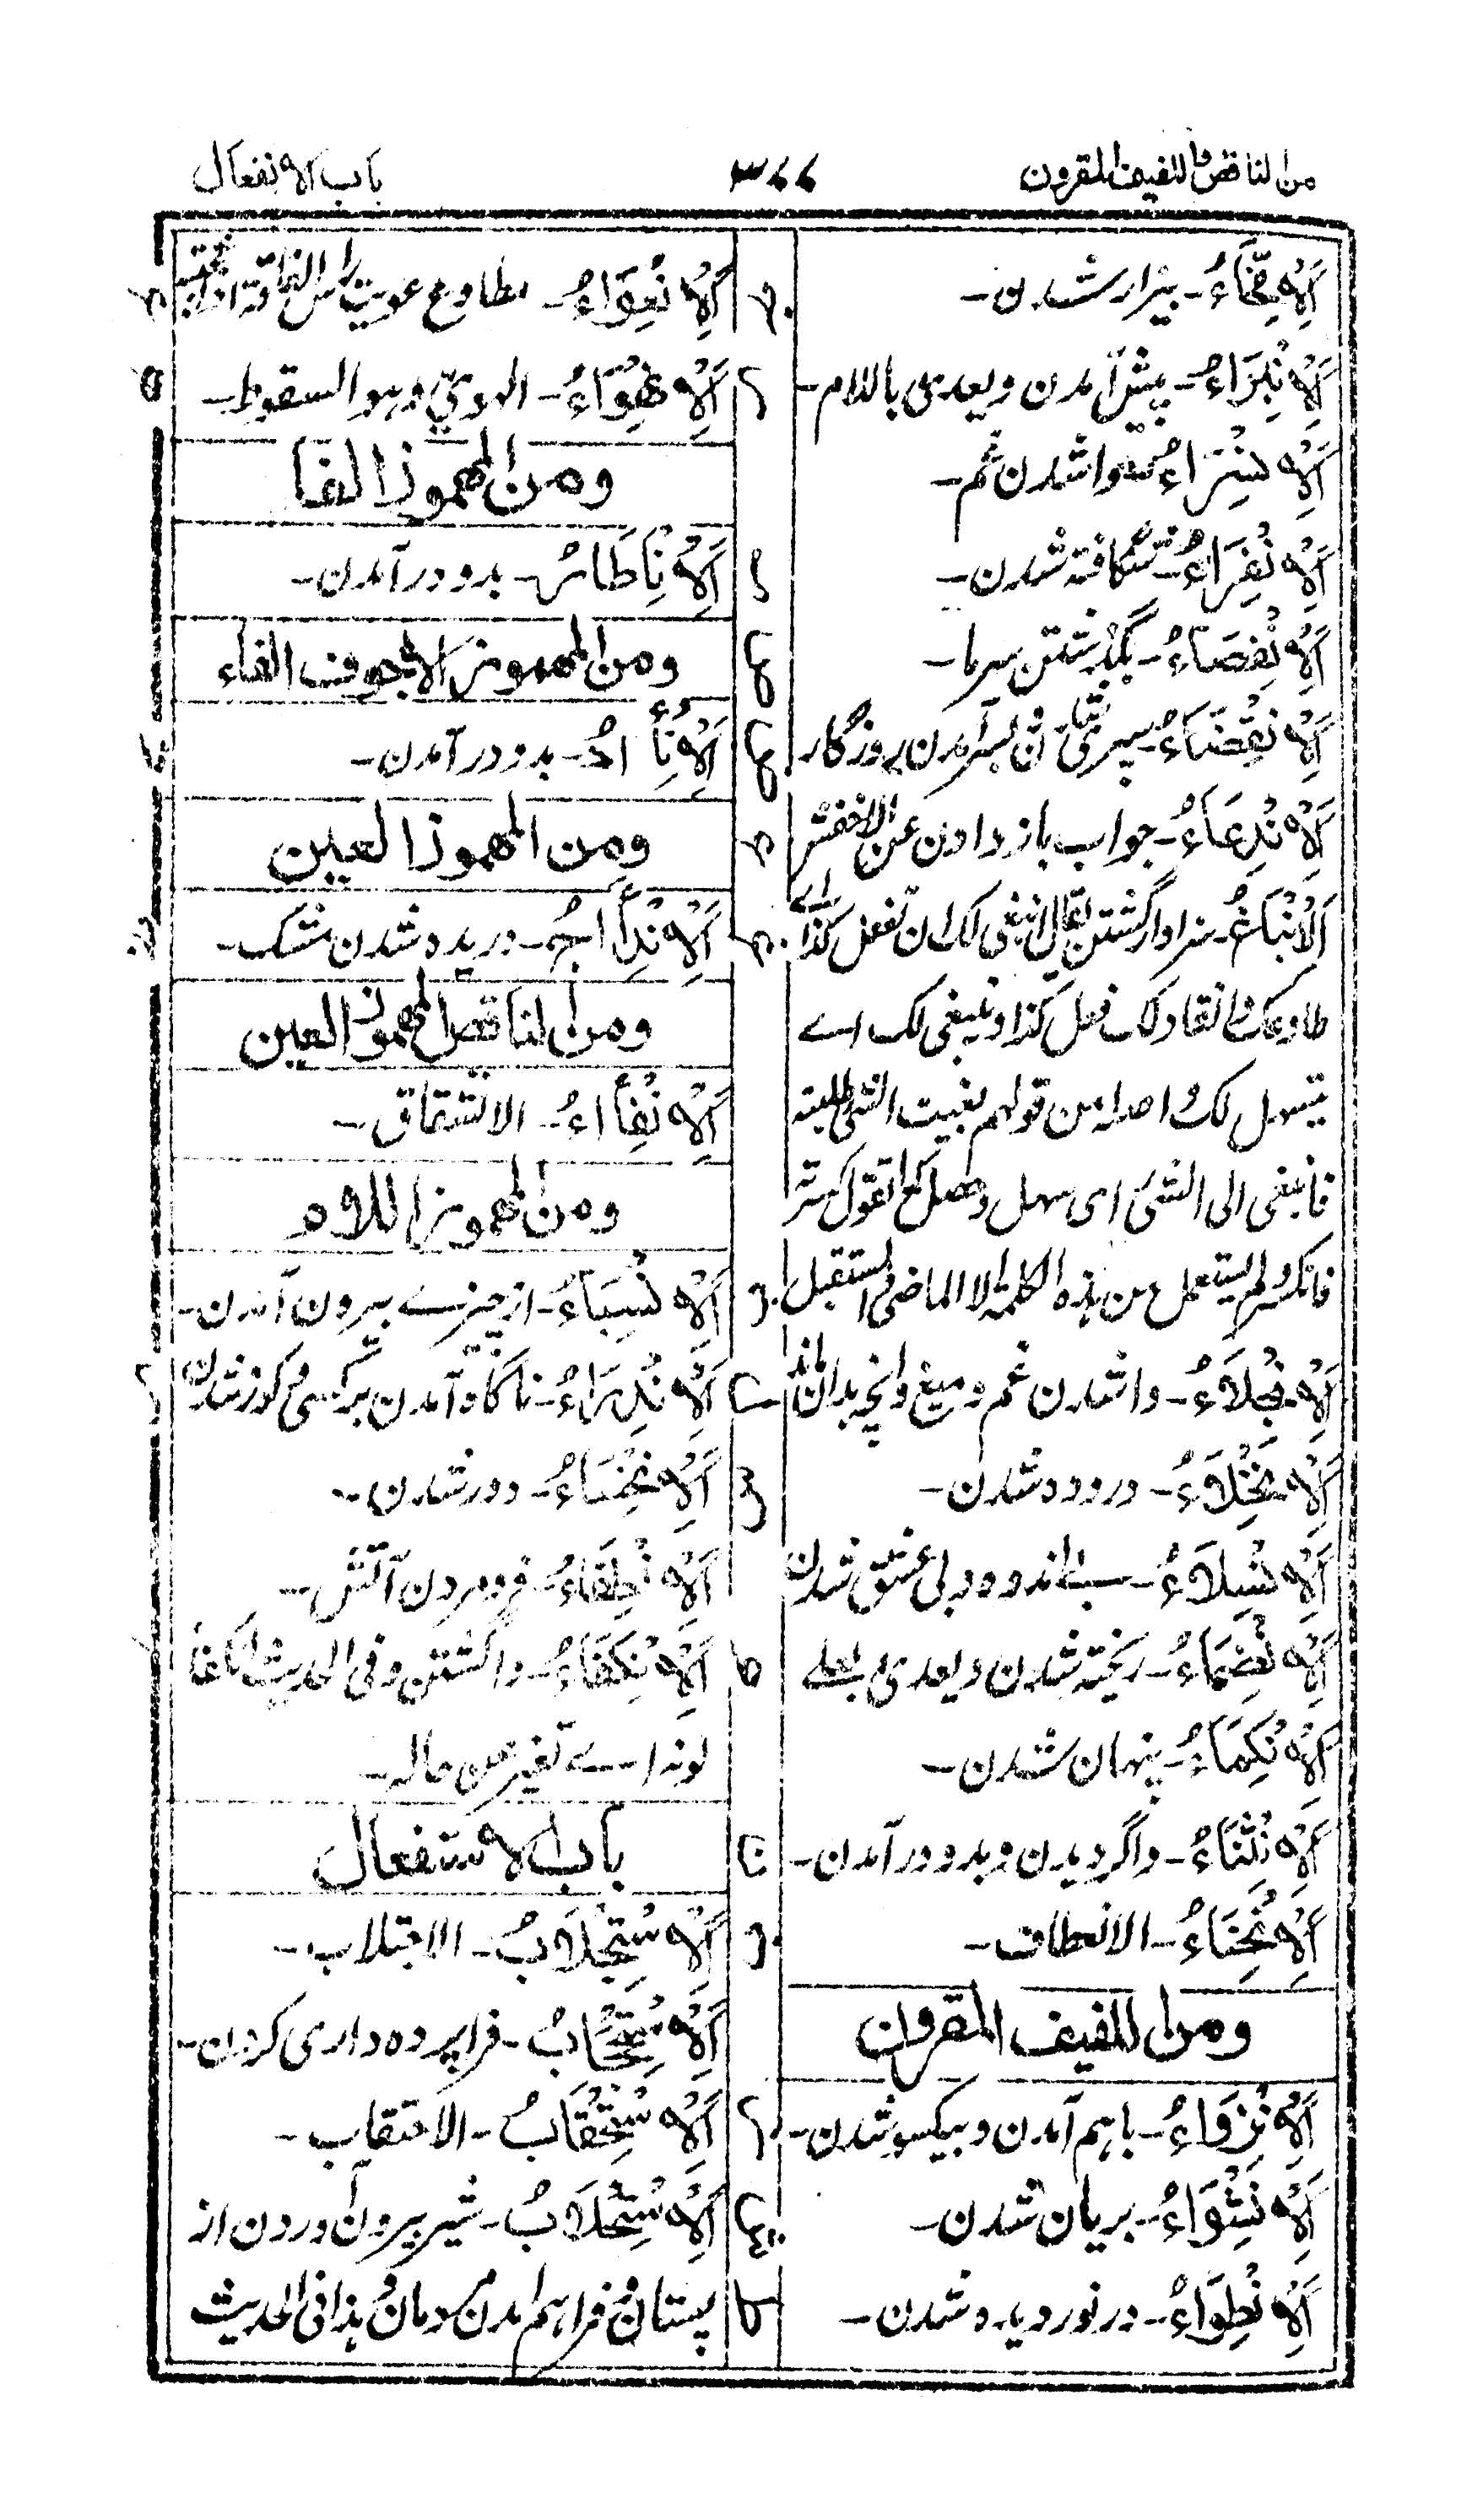 من الناقص واللفيف المقرون
۳۷۷
باب الانفعال
بیزار شدن-
اَلْاِنْبِرَاءُ- پیش آمدن ویعدی باللام-
اَلْاِنْسِرَاءُ- واشدن غم-
اَلْاِنْفِرَاءُ- شگافته شدن-
اَلْاِنْفِصَاءُ- بگذشتن سرما-
اَلْاِنْقِضَاءُ- سپری شدن بسر آمدن روزگار
اَلْاِنْدِعَاءُ- جواب باز دادن عن الاخفش
اَلْاِنْبِغَاءُ- سزاوار گشتن یقال انبغی لک ان تفعل کذا اے
طاوعک وانقاد لک فعل کذا وینبغی لک اے
یتسهل لک واصله من قولهم بغیت الشئ طلبته
فانبغی الی الشئ ای سهل وحصل کما تقول کسرته
فانکسر ولم یستعمل من هذه الکلمة الا الماضی والمستقبل
اَلْاِنْجِلَاءُ- واشدن غم ومیغ وانچه بدان ماند
اَلْاِنْخِلَاءُ- دروده شدن-
اَلْاِنْسِلَاءُ- بے اندوه وبی عشق شدن
ریخته شدن ویعدی بعلے
اَلْاِنْكِمَاءُ- پنهان شدن-
اَلْاِنْثِنَاءُ- واگردیدن وبدو درآمدن-
اَلْاِنْحِنَاءُ- الانعطاف-
ومن اللفیف المقرون
اَلْاِنْزِوَاءُ- باهم آمدن وبیکسو شدن-
اَلْاِنْشِوَاءُ- بریان شدن-
اَلْاِنْطِوَاءُ- در نوردیده شدن-
اَلْاِنْعِوَاءُ- مطاوع عویت راس الناقة اذا
اَلْاِنْهِوَاءُ- الهوی وهو السقوط-
ومن المهموز الفا
اَلْاِنْئِطَارُ- بدو درآمدن-
ومن المهموز الاجوف الفاء
بدو درآمدن-
ومن المهموز العین
اَلْاِنْذِأَاجُ- دریده شدن مشک-
ومن الناقص المهموز العین
اَلْاِنْفِأَاءُ- الانشقاق-
ومن المهموز اللام
اَلْاِنْسِبَاءُ- از چیزے بیرون آمدن-
اَلْاِنْدِرَاءُ- ناگاه آمدن بر کسی
اَلْاِنْخِسَاءُ- دور شدن-
اَلْاِنْطِفَاءُ- فرو مردن آتش-
اَلْاِنْكِفَاءُ- واگشتن وفی الحدیث انکفأ
لونه اے تغیر عن حاله-
باب الاستفعال
اَلْاِسْتِجْلَابُ- الاجتلاب-
اَلْاِسْتِحْجَابُ- فرا پرده داری کردن-
اَلْاِسْتِحْقَابُ- الاحتقاب-
اَلْاِسْتِحْلَابُ- شیر بیرون آوردن از
پستان وفراهم آمدن مردمان وهذا فی الحدیث